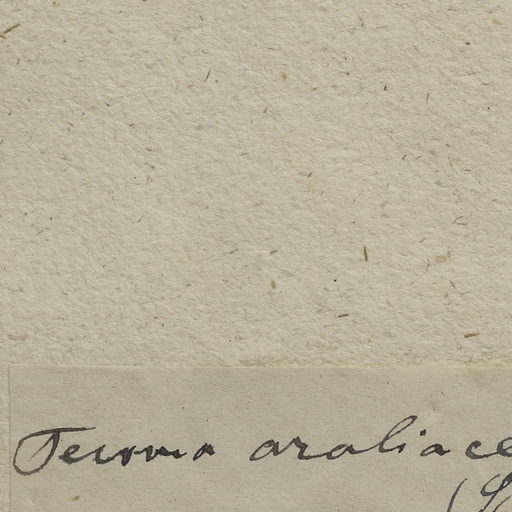 Tecoma araliace